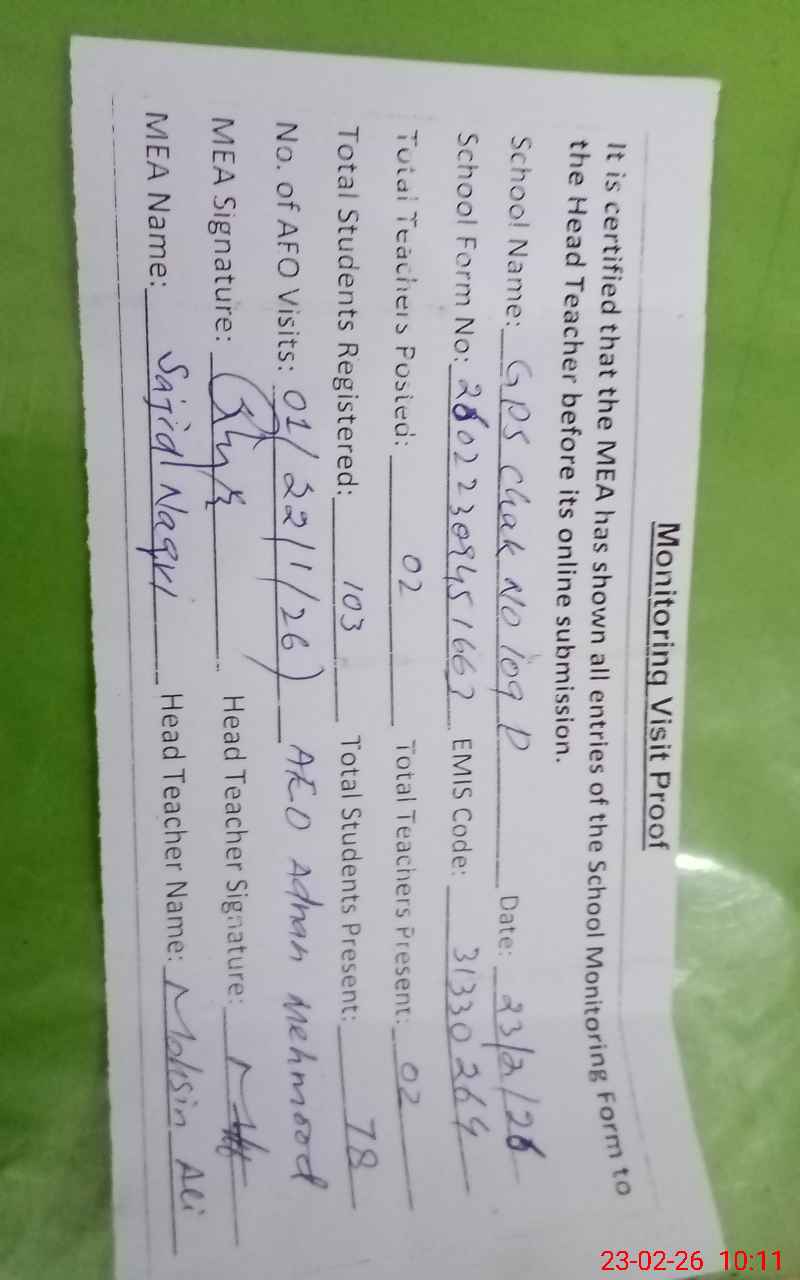 Monitoring Visit Proof
It is certified that the MEA has shown all entries of the School Monitoring Form to
the Head Teacher before its online submission.
School Name: GPS Chak No 109 D Date: 23/2/26
School Form No: EMIS Code: 31330269
Total Teachers Posted: 02 Total Teachers Present: 02
Total Students Registered: 103 Total Students Present: 78
No. of AEO Visits: 01/22/1/26) AEO Adnan Mehmood
MEA Signature: Head Teacher Signature:
MEA Name: Sajid Naqvi Head Teacher Name: Mohsin Ali
23-02-26 10:11